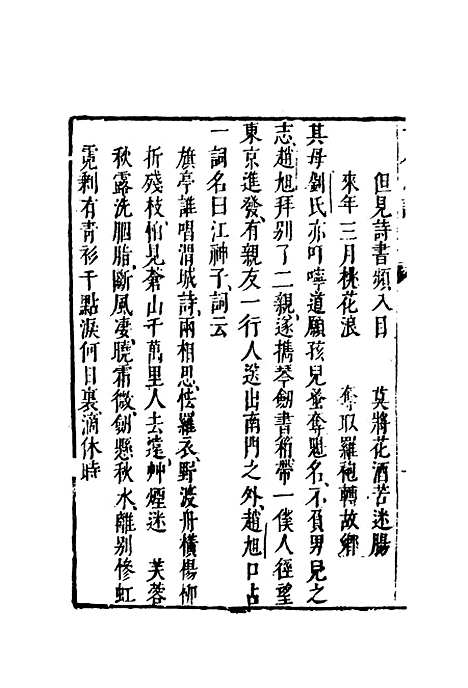 但見詩書頻入目　莫將花酒苦迷腸
來年三月桃花浪　奪取羅袍轉故鄉
其母劉氏亦叮嚀道願孩兒蚤奪魁名不負男兒之
志趙旭拜別了二親遂携琴劒書箱帶一僕人徑望
東京進發有親友一行人送出南門之外趙旭口占
一詞名曰江神子詞云
旗亭誰唱渭城詩兩相思怯羅衣野渡舟橫楊柳
折殘枝怕見蒼山千萬里人去遠艸煙迷　芙蓉
秋露洗胭脂斷風凄曉霜微劒懸秋水離別慘虹
霓剩有青衫千點淚何日裏滴休時